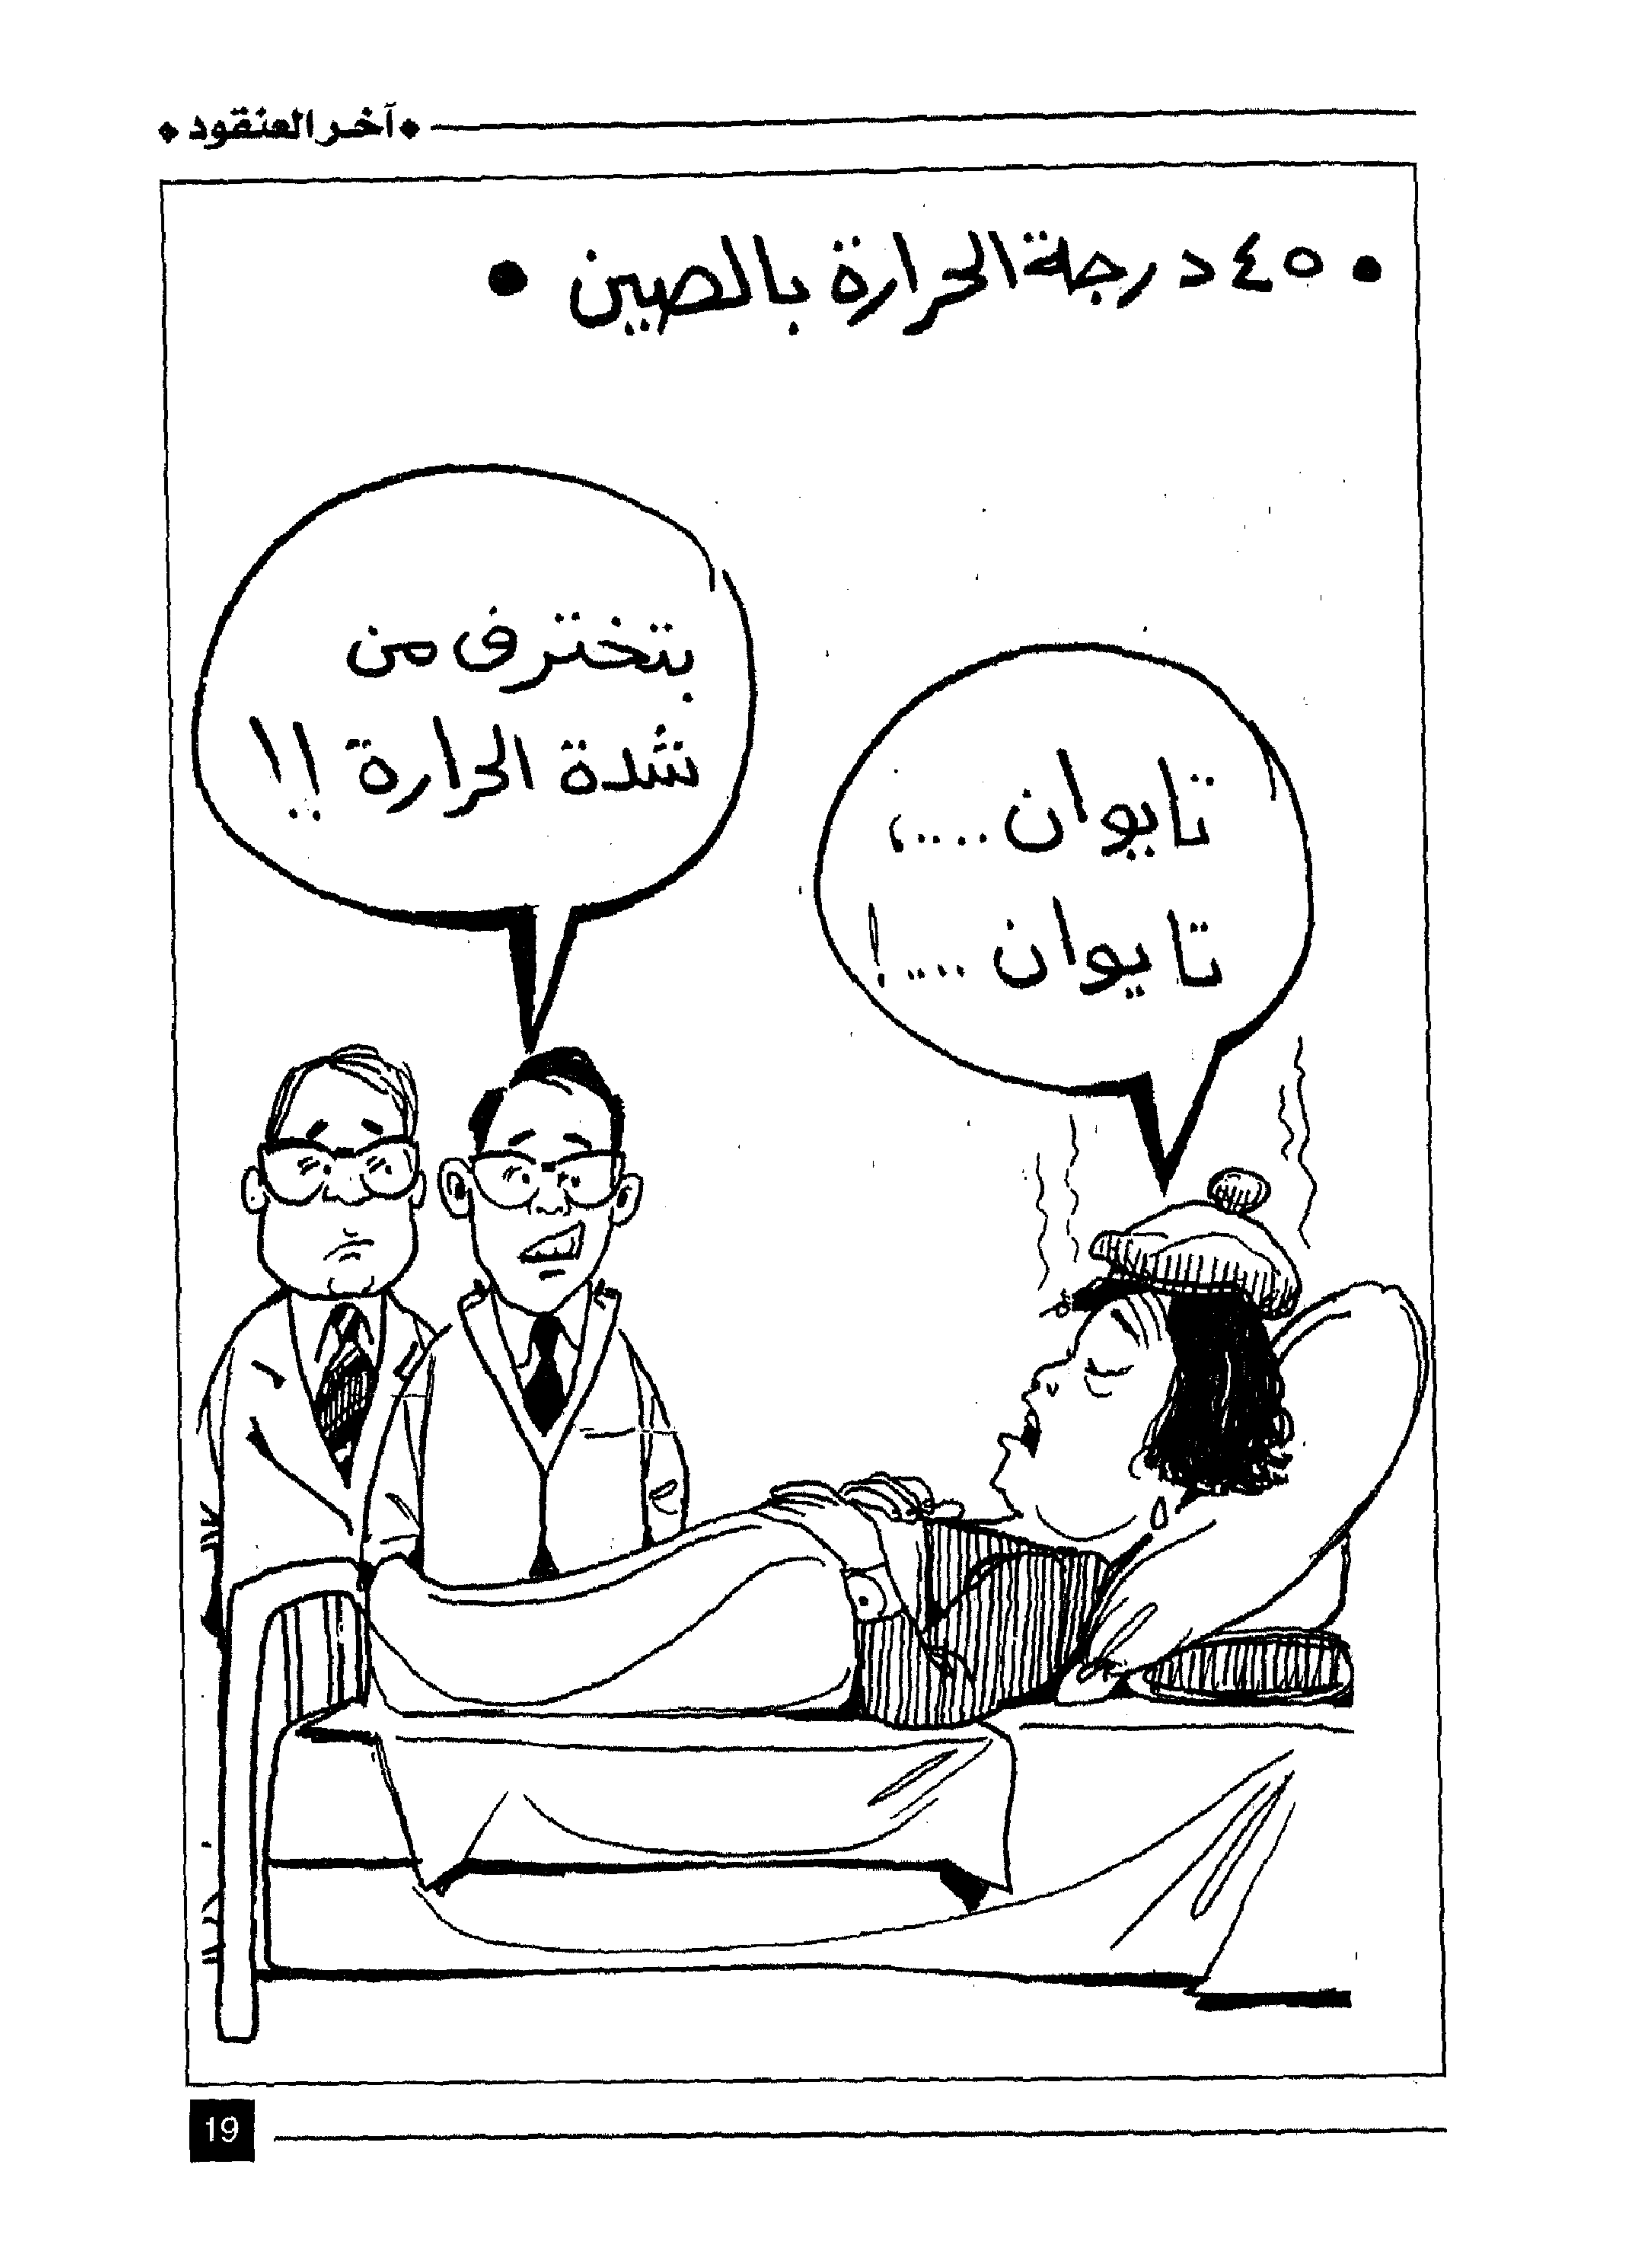 آخر العنقود
• ٤٥ درجة الحرارة بالصين •
بتخترف من
شدة الحرارة !!
تايوان ....،
تايوان ....!
19